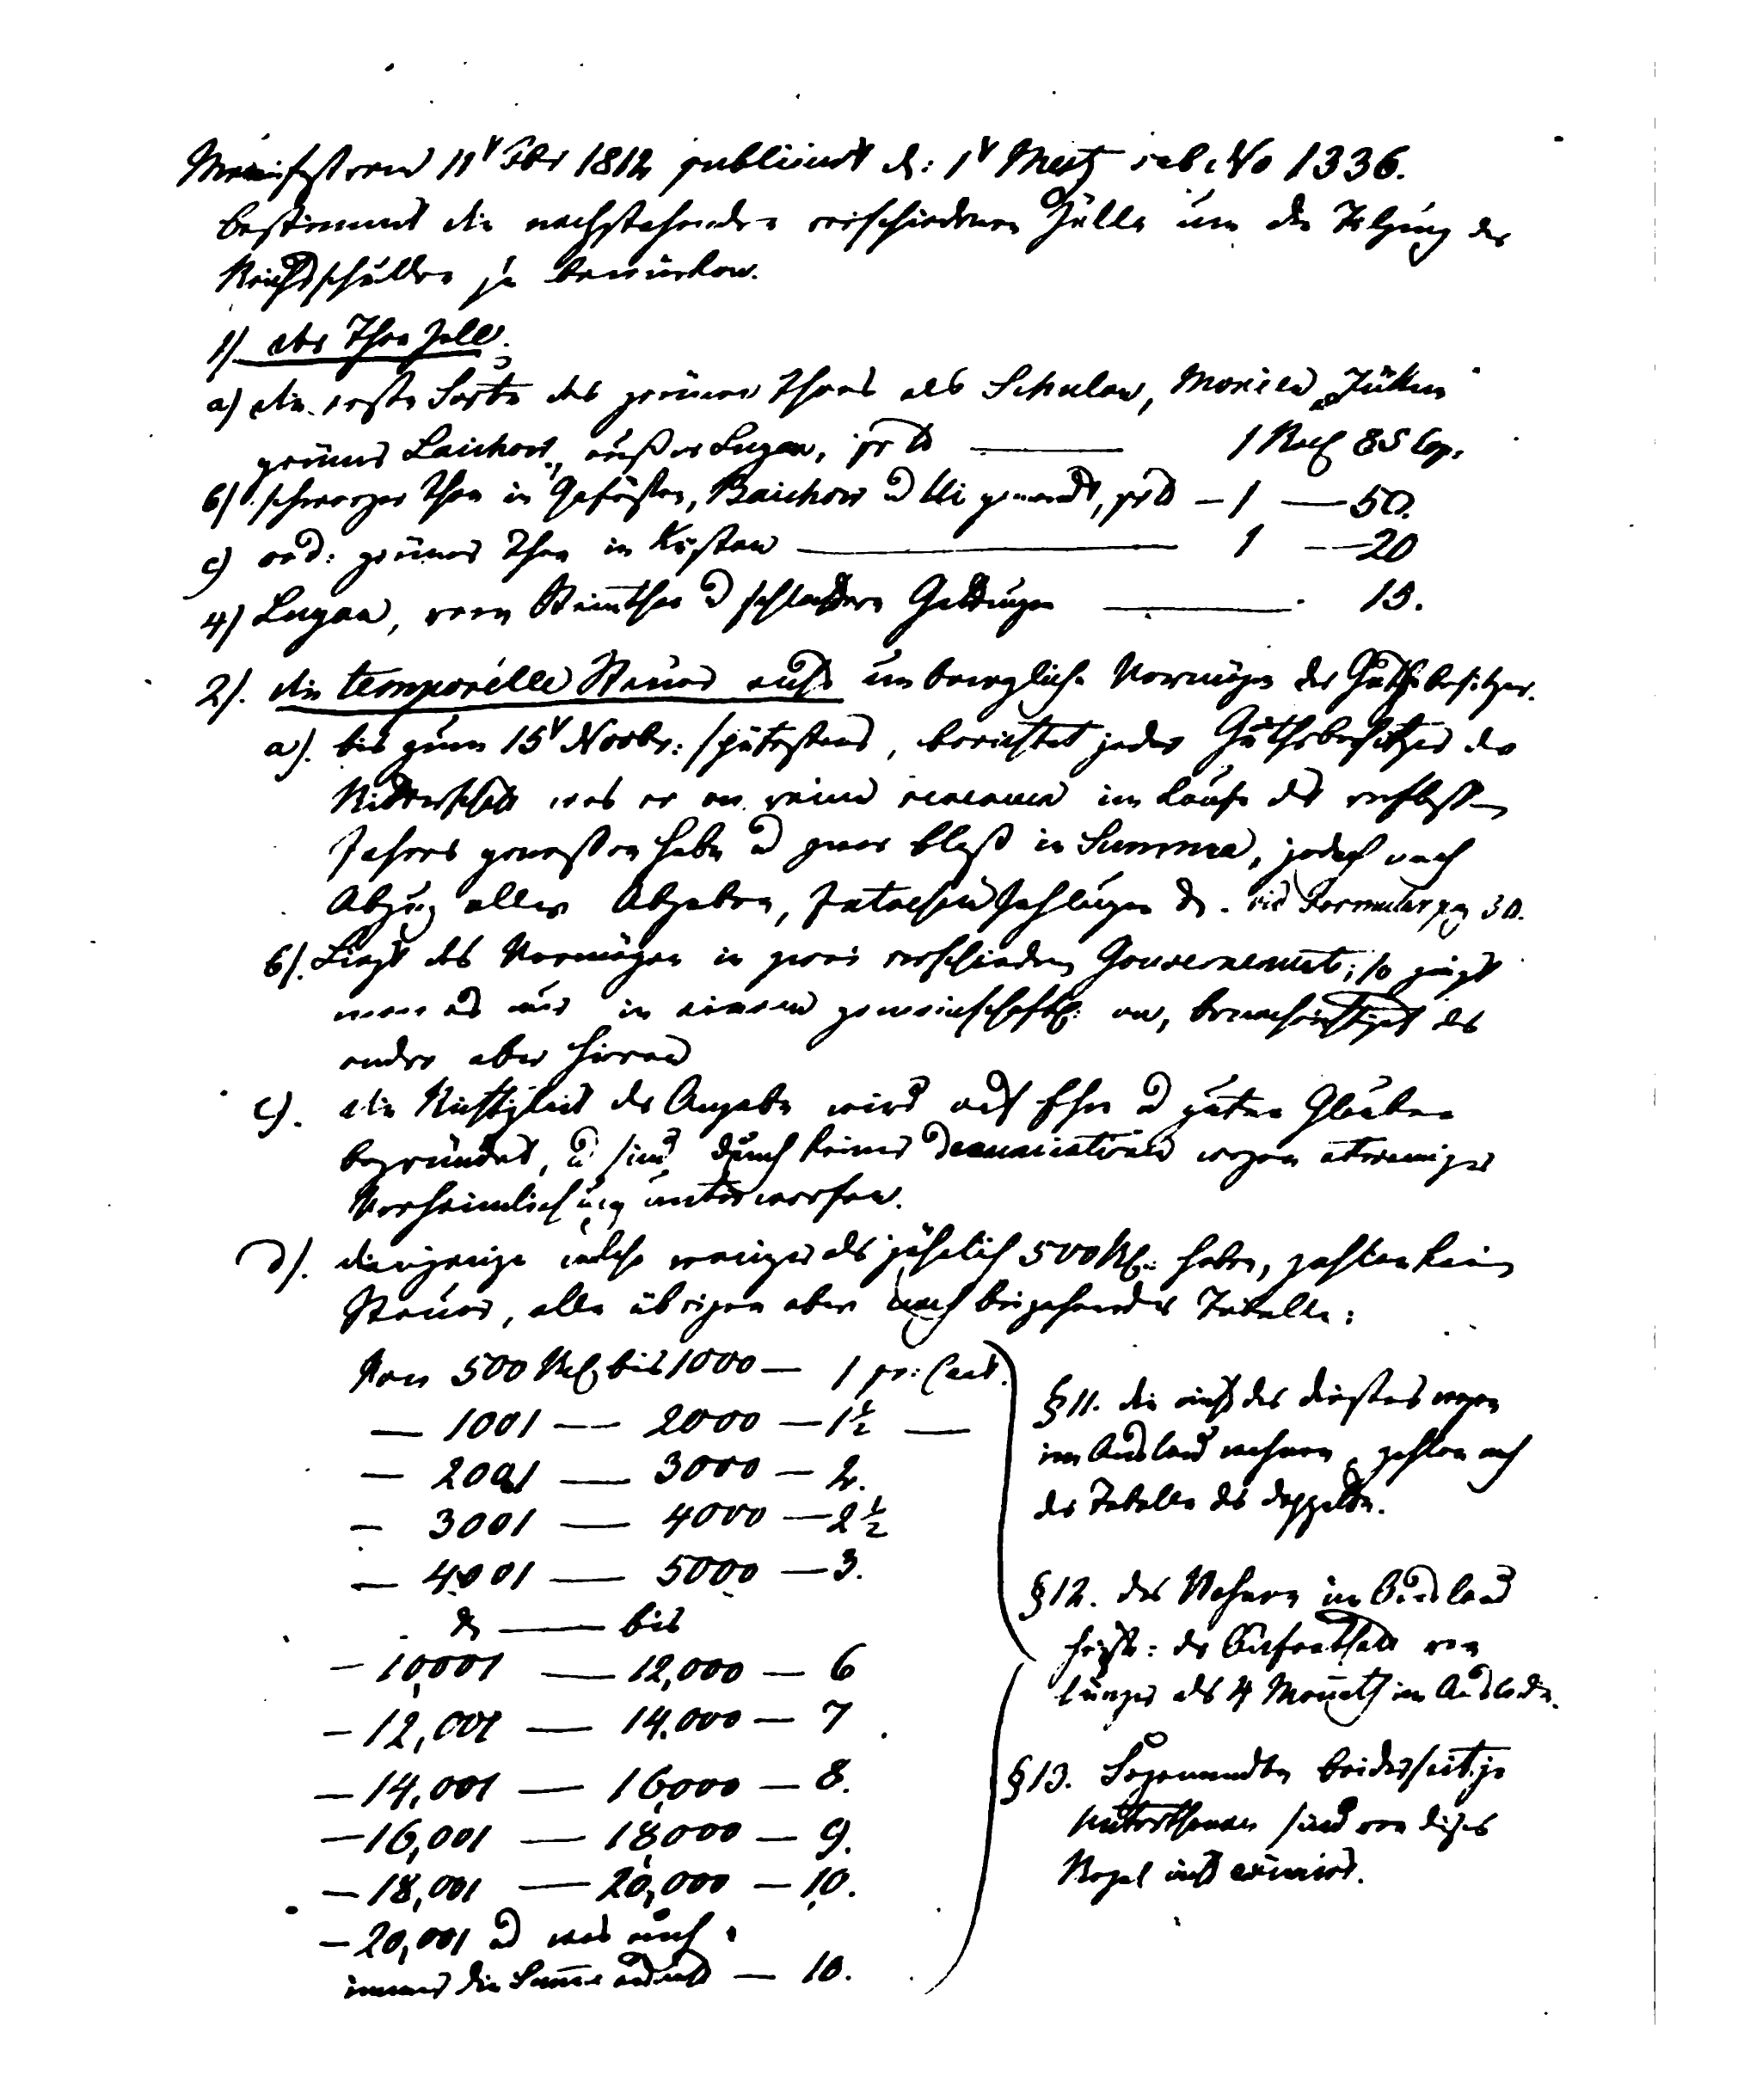 Manifest vom 11t Fbr 1812 publicirt d: 1t Mertz sub No 1336.
bestimmt die nachstehenden verschiedenen Zölle um die Tilgung der
Reichsschulden zu bewürken.
1) der Thee Zoll.
a) die erste Sorte des grünen Thees als Schulan, Monien
grüner Laichow, außer Lugan, pr ℔ — 1 Rbl 85 Cop.
b) schwarzer Thee in Gefäßen, Baichow u Ui genandt, pr ℔ — 1 — 50.
c) ord: grüner Thee in Kysten — 1 — 20
4) Lugan, vom Steinthee u schlechtern Gattungen — 15.
2). die temporelle Steuer aufs unbewegliche Vermögen der Guthsbesitzer.
a). bis zum 15t Novbr: spätestens, berichtet jeder Guthsbesitzer der
Ritterschaft was er an reinen revenuen im Laufe des verfloßenen
Jahres genoßen habe u zwar bloß in Summa, jedoch nach
Abzug aller Abgaben, Interessen Zahlungen &. vid Formular pag 30.
b). Liegt das Vermögen in zwei verschiednen Gouvernements; so zeigt
man es nur in einem gemeinschaftl: an, benachrichtiget das
andre aber hievon
c). die Richtigkeit der Angabe wird auf Ehre u guten Glauben
begründet, u sind durch keiner Denunciation wegen etwaniger
Verheimlichung unterworfen.
d). diejenige welche weniger als jährlich 500 Rbl: haben, zahlen keine
Steuer, alle übrigen aber nach beigehender Tabelle:
Von 500 Rbl bis 1000 — 1 pr: Cent.
— 1001 — 2000 — 1½ —
— 2001 — 3000 — 2.
— 3001 — 4000 — 2½
— 4001 — 5000 — 3.
& — bis
— 10,001 — 12,000 — 6
— 12,001 — 14,000 — 7
— 14,001 — 16,000 — 8.
— 16,001 — 18,000 — 9.
— 18,001 — 20,000 — 10.
— 20,001 u was auch
immer die Summe — 10.
§ 11. die nicht des dienstes wegen
im Ausland wohnen, zahlen nach
der Tabelle das doppelte.
§ 12. das Wohnen im Ausland
heißt: der Aufenthalt von
länger als 4 Monath im Auslande.
§ 13. Sogenandte beiderseitige
Unterthanen sind von dieser
Regel nicht eximirt.